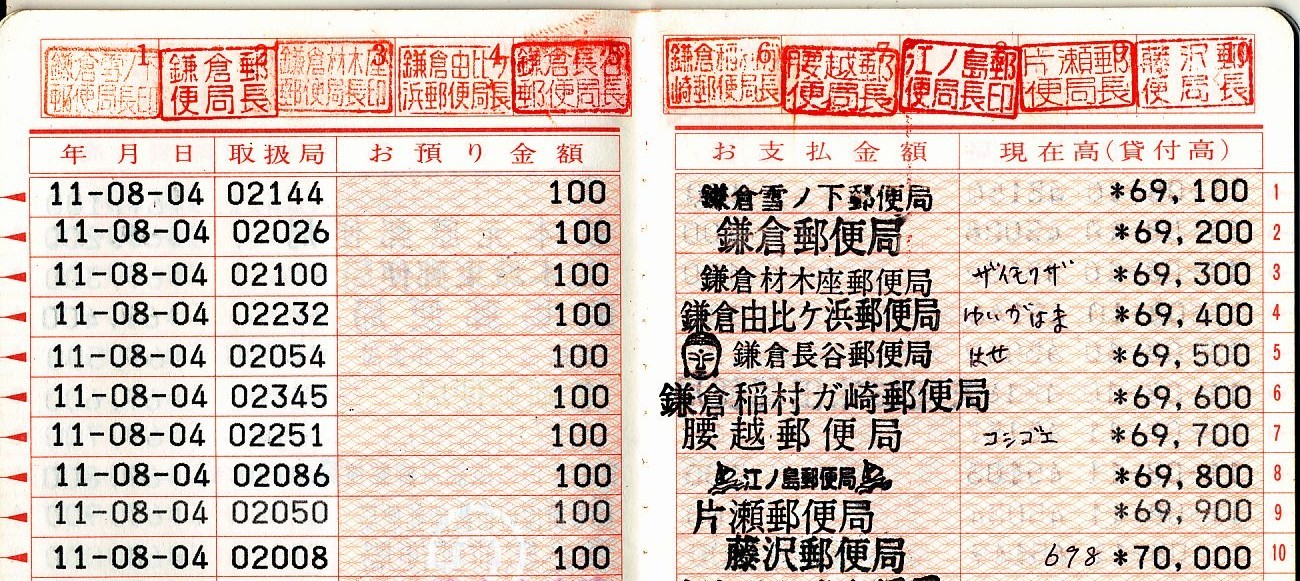 1 鎌倉雪ノ下郵便局長印
2 鎌倉郵便局長
3 鎌倉材木座郵便局長印
4 鎌倉由比ケ浜郵便局長
5 鎌倉長谷郵便局長
6 鎌倉稲村ガ崎郵便局長
7 腰越郵便局長
8 江ノ島郵便局長印
9 片瀬郵便局長
10 藤沢郵便局長
年月日 取扱局 お預り金額 お支払金額 現在高(貸付高)
11-08-04 02144 100 鎌倉雪ノ下郵便局 *69,100 1
11-08-04 02026 100 鎌倉郵便局 *69,200 2
11-08-04 02100 100 鎌倉材木座郵便局 ザイモクザ *69,300 3
11-08-04 02232 100 鎌倉由比ケ浜郵便局 ゆいがはま *69,400 4
11-08-04 02054 100 鎌倉長谷郵便局 はせ *69,500 5
11-08-04 02345 100 鎌倉稲村ガ崎郵便局 *69,600 6
11-08-04 02251 100 腰越郵便局 コシゴエ *69,700 7
11-08-04 02086 100 江ノ島郵便局 *69,800 8
11-08-04 02050 100 片瀬郵便局 *69,900 9
11-08-04 02008 100 藤沢郵便局 698 *70,000 10